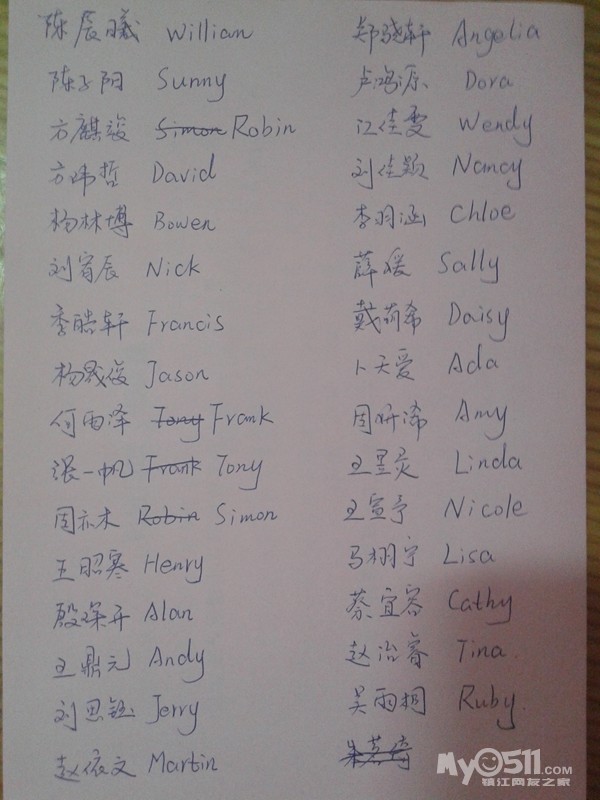 陈辰曦 Willian
陈子阳 Sunny
方麒骏 Simon Robin
方玮哲 David
杨林博 Bowen
刘宥辰 Nick
季皓轩 Francis
杨晟俊 Jason
何雨泽 Tony Frank
张一帆 Frank Tony
周亦木 Robin Simon
王昭寒 Henry
殷琛开 Alan
王鼎元 Andy
刘思钰 Jerry
赵依文 Martin
郑骁轩 Angelia
卢鸣源 Dora
江佳雯 Wendy
刘佳颖 Nancy
李羽涵 Chloe
薛媛 Sally
戴荷希 Daisy
卜天爱 Ada
周妍浠 Amy
王昱灵 Linda
王萱予 Nicole
马栩宁 Lisa
蔡宜容 Cathy
赵治睿 Tina.
吴雨桐 Ruby
My0511.COM
镇江网友之家